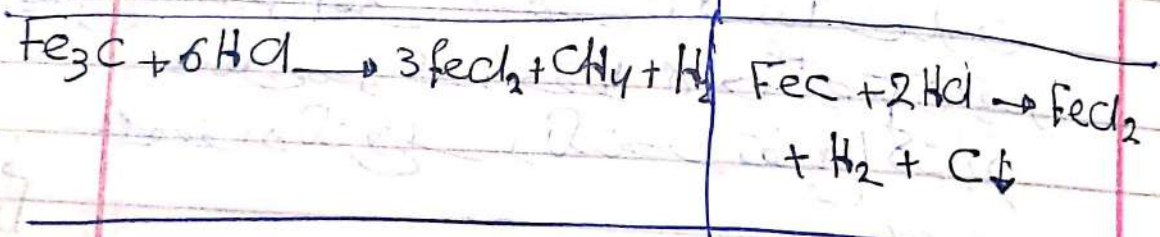 Fe₃C + 6HCl → 3FeCl₂ + CH₄ + H₂
FeC + 2HCl → FeCl₂
+ H₂ + C↓